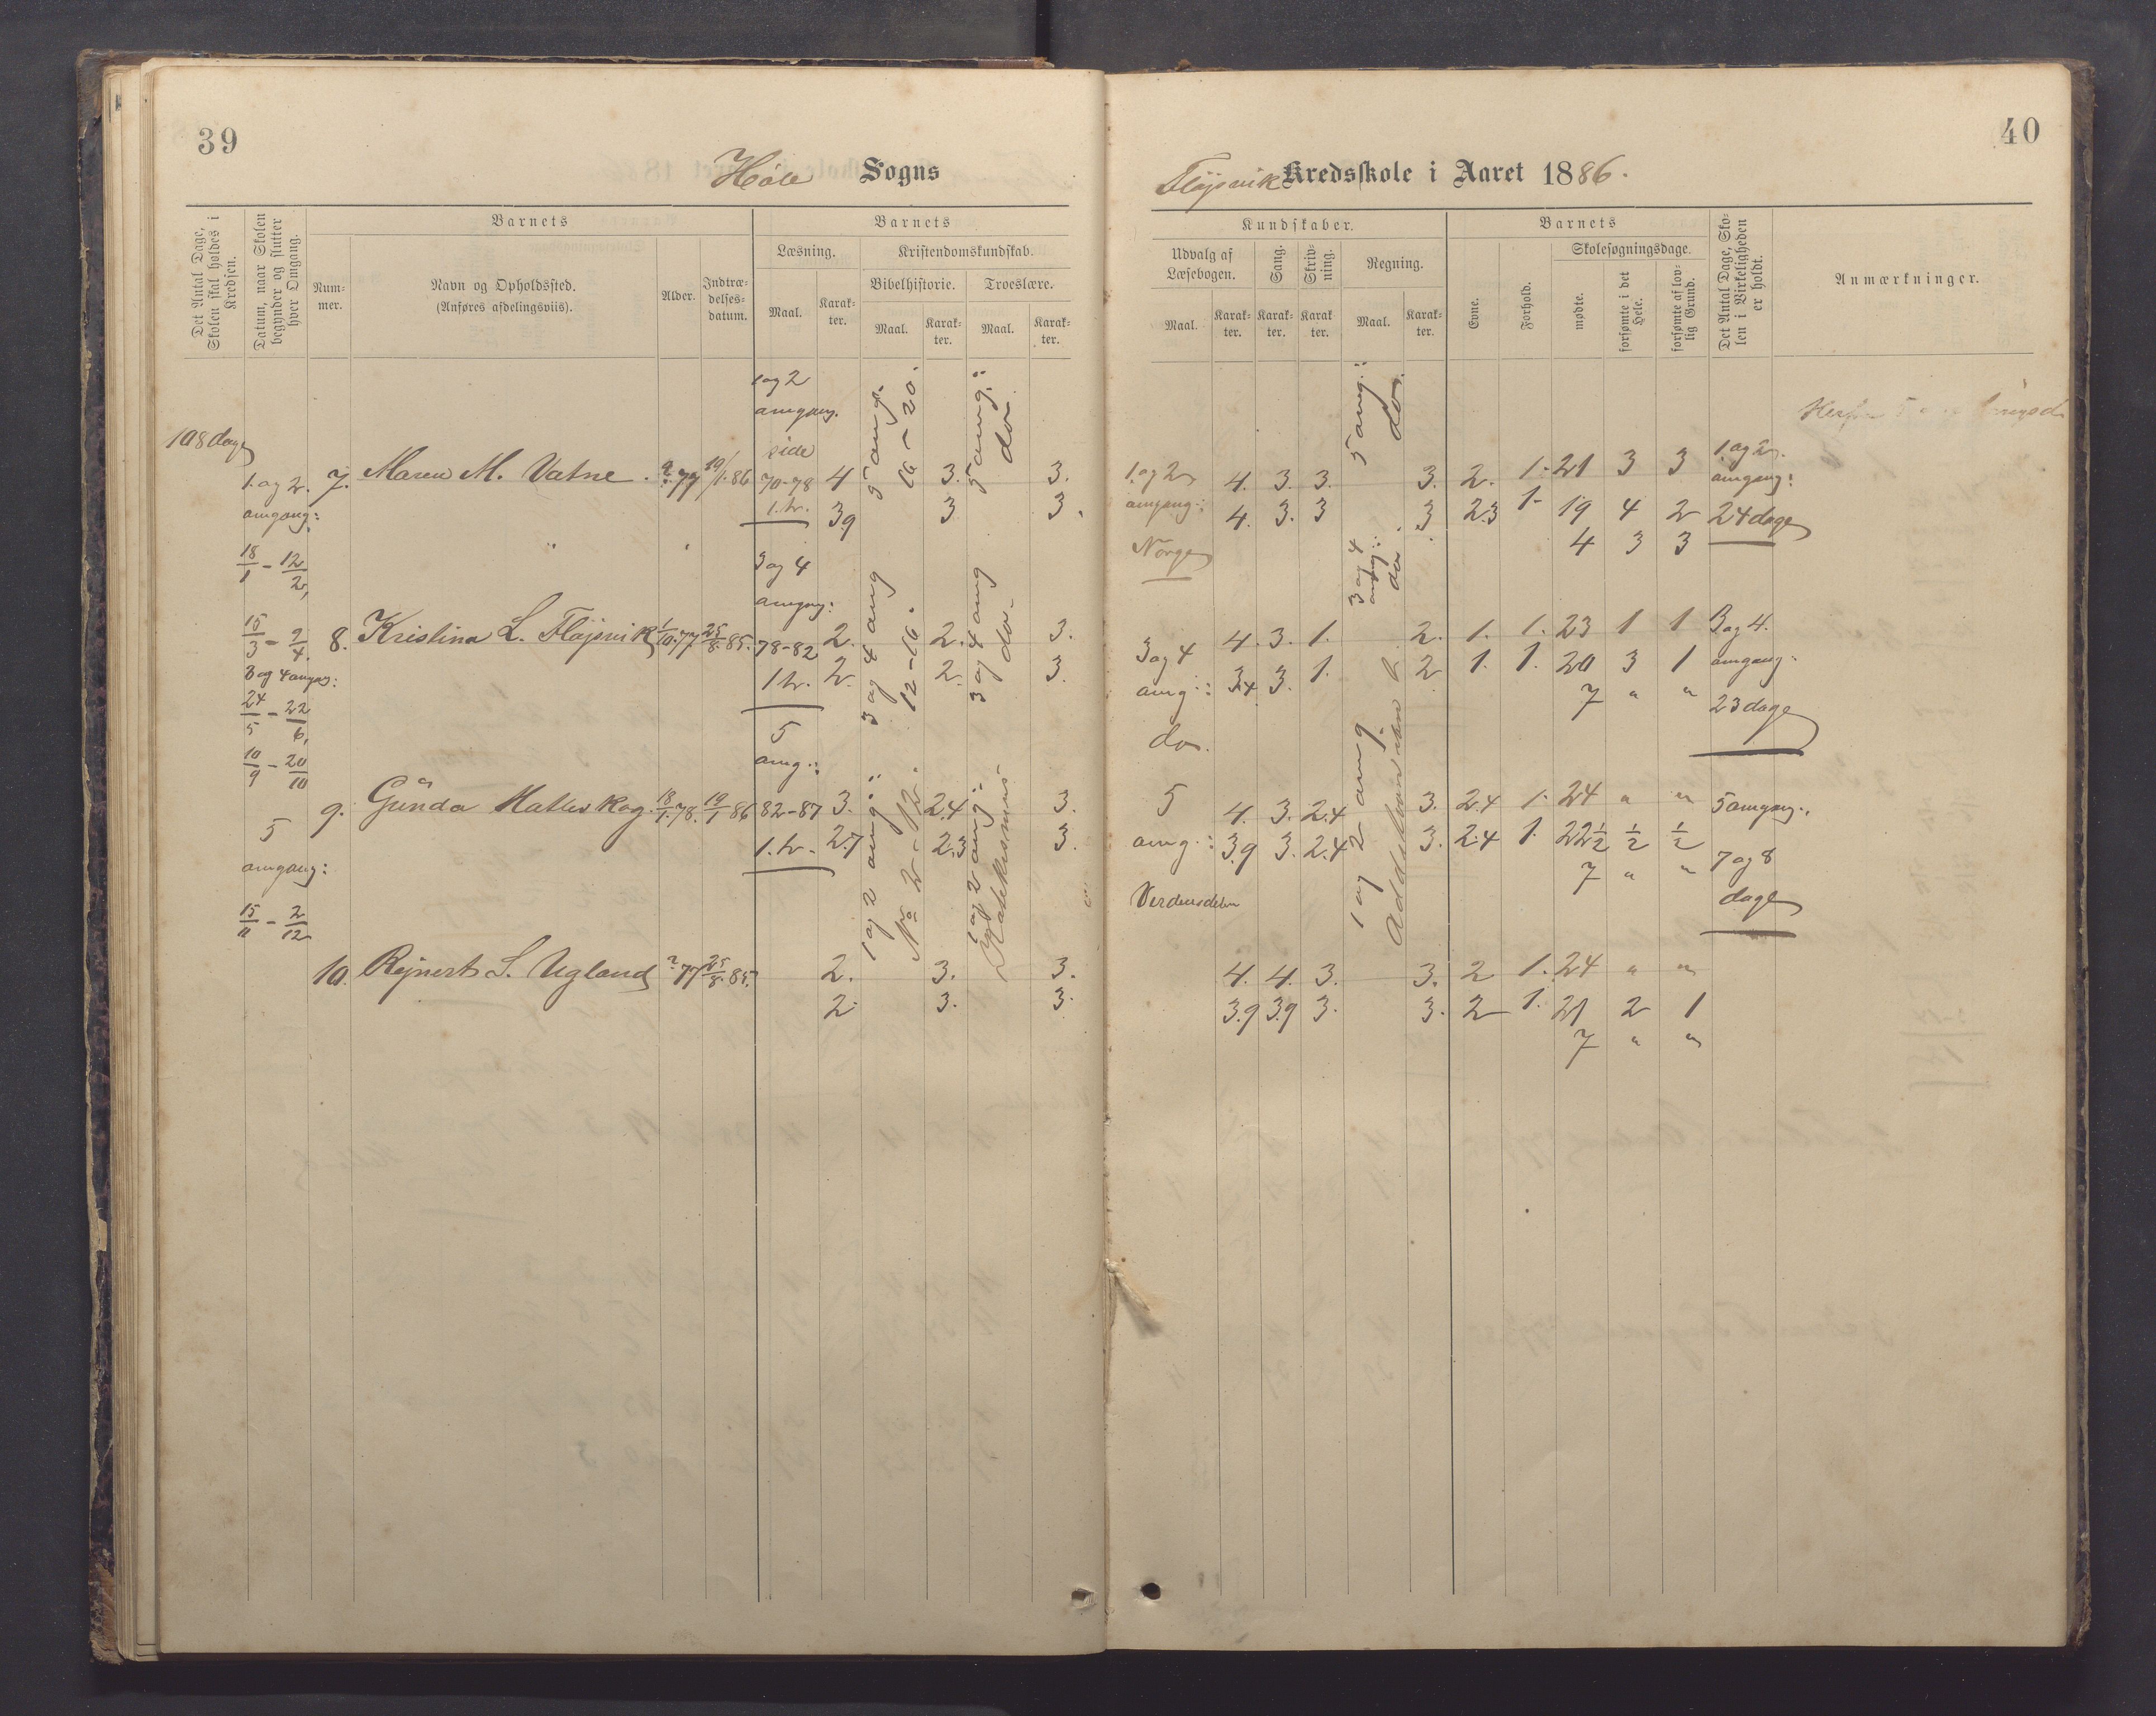 39
Høle Sogns
Det Antal Dage, Skolen skal holdes i Kredsen.
Datum, naar Skolen begynder og slutter hver Omgang.
Barnets
Nummer.
Navn og Opholdssted.
(Anføres afdelingsviis).
Alder.
Indtrædelsesdatum.
Barnets
Læsning.
Maal.
Karakter.
Kristendomskundskab.
Bibelhistorie.
Maal.
Karakter.
Troeslære.
Maal.
Karakter.
108 dage
1. og 2.
omgang:
18/1 - 12/2,
15/3 - 9/4.
3 og 4 omgang:
24/5 - 22/6,
10/9 - 20/10
5
omgang:
15/11 - 2/12
1 og 2
omgang.
side
70-78
1. h.
3 og 4
omgang:
78-82
1 h.
5
omg.:
82-87
1. h.
5 omg.
16 - 20.
3 og 4 omg
12-16.
1 og 2 omg:
No 2 - 12.
5 omg.:
do.
3 og 4 omg
do.
1 og 2 omg:
Katekismus
7. Maren M. Vatne. ?.77 19/1.86 4 3. 3.
3.9 3 3.
8. Kristina L. Fløjsvik 1/10.77 25/8.85. 2. 2. 3.
2. 2. 3.
9. Gunda Hatleskog. 18/1.78. 19/1 86 3. 2.4 3.
2.7 2.3 3.
10. Rejnert S. Ugland ?77 25/8.85. 2. 3. 3.
2 3. 3.
40
Fløjsvik Kredsskole i Aaret 1886.
Kundskaber.
Udvalg af Læsebogen.
Maal.
Karakter.
Sang.
Karakter.
Skrivning.
Karakter
Regning.
Maal.
Karakter.
Barnets
Evne.
Forhold.
Skolesøgningsdage.
mødte.
forsømte i det Hele.
forsømte af lovlig Grund.
Det Antal Dage, Skolen i Virkeligheden er holdt.
Anmærkninger.
1. og 2
omgang:
Norge
3 og 4
omg.:
do.
5
omg.:
Verdensdelene
5 omg.:
do.
3 og 4
omg.:
do.
1 og 2 omg.
Additionen
4. 3. 3. 3. 2. 1. 21 3 3
4. 3. 3 3 2.3 1. 19 4 2
4 3 3
4. 3. 1. 2. 1. 1. 23 1 1
3.4 3. 1. 2 1. 1. 20 3 1
7 " "
4. 3. 2.4 3. 2.4 1. 24 " "
3.9 3. 2.4 3. 2.4 1. 22½ ½ ½
7 " "
4. 4. 3. 3. 2 1. 24 " "
3.9 3.9 3. 3. 2 1. 21 2 1
7 " "
1. og 2.
omgang:
24 dage
3 og 4.
omgang:
23 dage
5 omgang:
7 og 8
dage